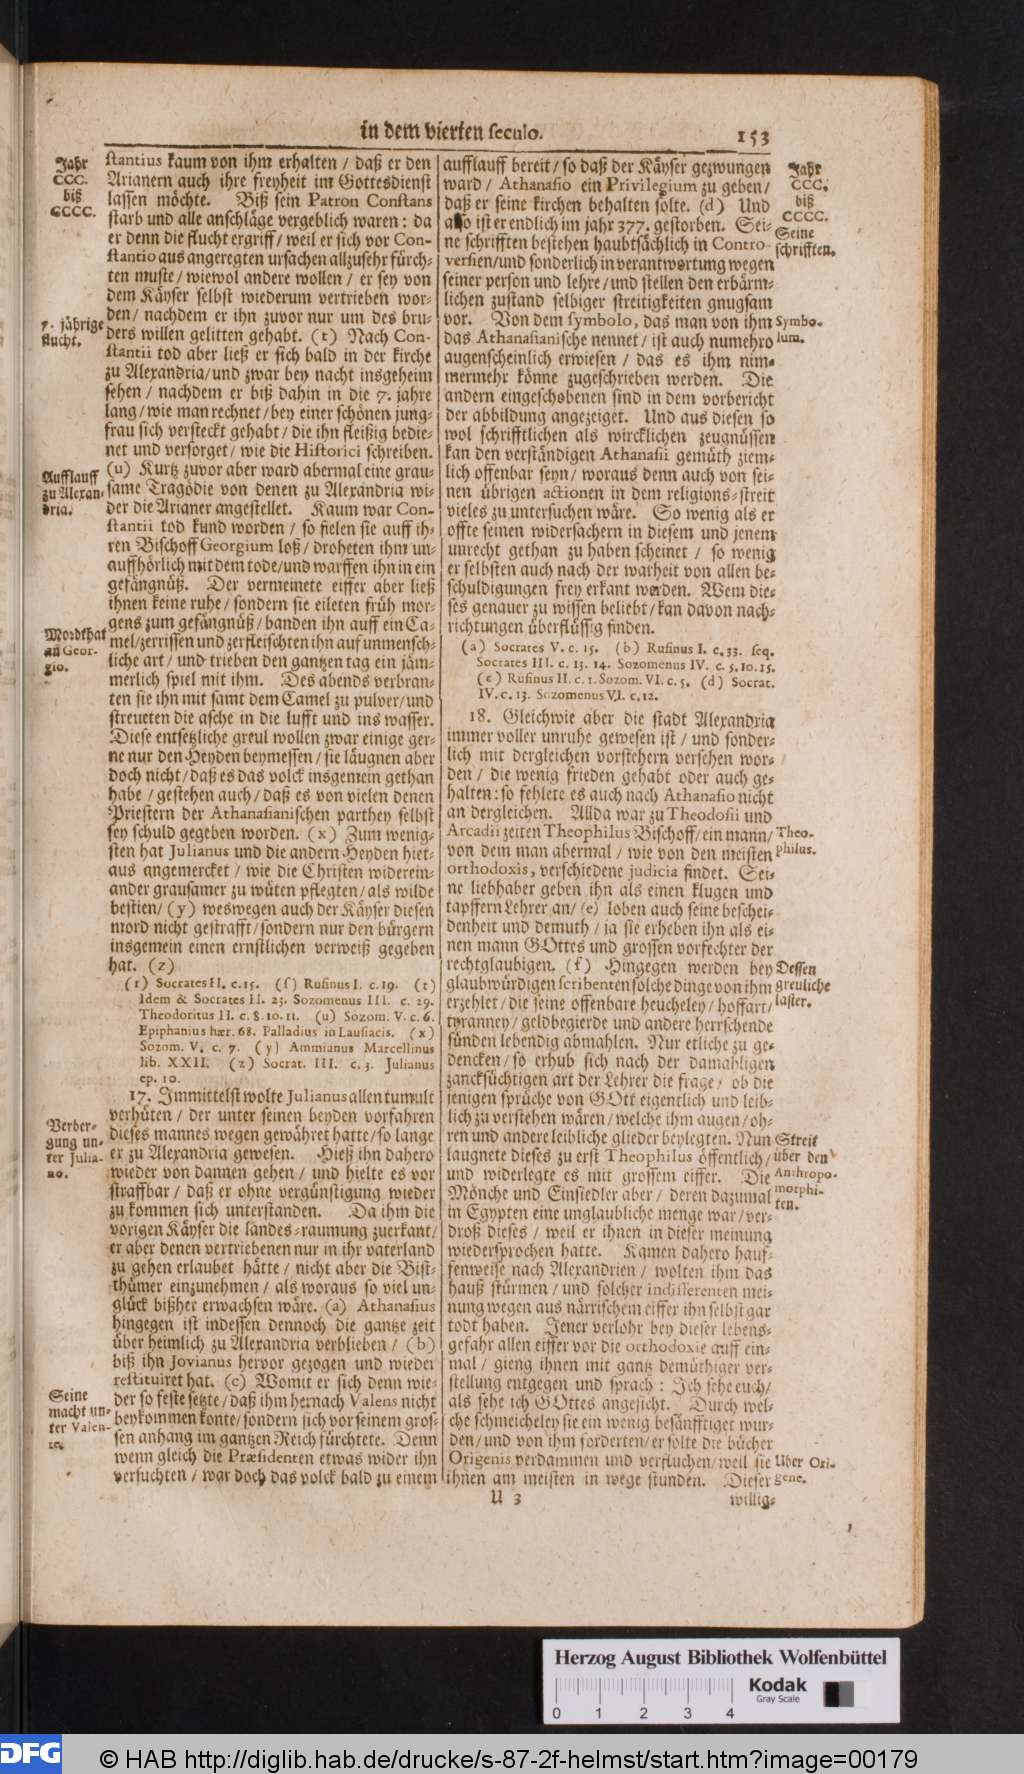 in dem vierten seculo.
153
Jahr
CCC.
biß
CCCC.
stantius kaum von ihm erhalten / daß er den
Arianern auch ihre freyheit im Gottesdienst
lassen möchte. Biß sein Patron Constans
starb und alle anschläge vergeblich waren: da
er denn die flucht ergriff / weil er sich vor Con-
stantio aus angeregten ursachen allzusehr fürch-
ten muste / wiewol andere wollen / er sey von
dem Käyser selbst wiederum vertrieben wor-
den / nachdem er ihn zuvor nur um des bru-
7. jährige
flucht.
ders willen gelitten gehabt. (t) Nach Con-
stantii tod aber ließ er sich bald in der kirche
zu Alexandria / und zwar bey nacht insgeheim
sehen / nachdem er biß dahin in die 7. jahre
lang / wie man rechnet / bey einer schönen jung-
frau sich versteckt gehabt / die ihn fleißig bedie-
net und versorget / wie die Historici schreiben.
Aufflauff
zu Alexan-
dria.
(u) Kurtz zuvor aber ward abermal eine grau-
same Tragödie von denen zu Alexandria wi-
der die Arianer angestellet. Kaum war Con-
stantii tod kund worden / so fielen sie auff ih-
ren Bischoff Georgium loß / droheten ihm un-
auffhörlich mit dem tode / und warffen ihn in ein
gefängnüß. Der vermeinete eiffer aber ließ
ihnen keine ruhe / sondern sie eileten früh mor-
gens zum gefängnüß / banden ihn auff ein Ca-
Mordthat
an Geor-
gio.
mel / zerrissen und zerfleischten ihn auf unmensch-
liche art / und trieben den gantzen tag ein jäm-
merlich spiel mit ihm. Des abends verbran-
ten sie ihn mit samt dem Camel zu pulver / und
streueten die asche in die lufft und ins wasser.
Diese entsetzliche greul wollen zwar einige ger-
ne nur den Heyden beymessen / sie läugnen aber
doch nicht / daß es das volck insgemein gethan
habe / gestehen auch / daß es von vielen denen
Priestern der Athanasianischen parthey selbst
sey schuld gegeben worden. (x) Zum wenig-
sten hat Julianus und die andern Heyden hier-
aus angemercket / wie die Christen widerein-
ander grausamer zu wüten pflegten / als wilde
bestien / (y) weswegen auch der Käyser diesen
mord nicht gestrafft / sondern nur den bürgern
insgemein einen ernstlichen verweiß gegeben
hat. (z)
(r) Socrates II. c. 15. (s) Rufinus I. c. 19. (t)
Idem & Socrates II. 23. Sozomenus III. c. 29.
Theodoritus II. c. 8. 10. 11. (u) Sozom. V. c. 6.
Epiphanius hær. 68. Palladius in Lausiacis. (x)
Sozom. V. c. 7. (y) Ammianus Marcellinus
lib. XXII. (z) Socrat. III. c. 3. Julianus
ep. 10.
17. Immittelst wolte Julianus allen tumult
Verber-
gung un-
ter Julia-
no.
verhüten / der unter seinen beyden vorfahren
dieses mannes wegen gewähret hatte / so lange
er zu Alexandria gewesen. Hieß ihn dahero
wieder von dannen gehen / und hielte es vor
straffbar / daß er ohne vergünstigung wieder
zu kommen sich unterstanden. Da ihm die
vorigen Käyser die landes-raumung zuerkant /
er aber denen vertriebenen nur in ihr vaterland
zu gehen erlaubet hätte / nicht aber die Bist-
thümer einzunehmen / als woraus so viel un-
glück bißher erwachsen wäre. (a) Athanasius
hingegen ist indessen dennoch die gantze zeit
über heimlich zu Alexandria verblieben / (b)
biß ihn Jovianus hervor gezogen und wieder
restituiret hat. (c) Womit er sich denn wie-
Seine
macht un-
ter Valen-
te.
der so feste setzte / daß ihm hernach Valens nicht
beykommen konte / sondern sich vor seinem gros-
sen anhang im gantzen Reich fürchtete. Denn
wenn gleich die Præsidenten etwas wider ihn
versuchten / war doch das volck bald zu einem
aufflauff bereit / so daß der Käyser gezwungen
ward / Athanasio ein Privilegium zu geben /
daß er seine kirchen behalten solte. (d) Und
also ist er endlich im jahr 377. gestorben. Sei-
Jahr
CCC.
biß
CCCC.
Seine
schrifften.
ne schrifften bestehen haubtsächlich in Contro-
versien / und sonderlich in verantwortung wegen
seiner person und lehre / und stellen den erbärm-
lichen zustand selbiger streitigkeiten gnugsam
vor. Von dem symbolo, das man von ihm
Symbo-
lum.
das Athanasianische nennet / ist auch numehro
augenscheinlich erwiesen / das es ihm nim-
mermehr könne zugeschrieben werden. Die
andern eingeschobenen sind in dem vorbericht
der abbildung angezeiget. Und aus diesen so
wol schrifftlichen als wircklichen zeugnüssen
kan den verständigen Athanasii gemüth ziem-
lich offenbar seyn / woraus denn auch von sei-
nen übrigen actionen in dem religions-streit
vieles zu untersuchen wäre. So wenig als er
offte seinen widersachern in diesem und jenem
unrecht gethan zu haben scheinet / so wenig
er selbsten auch nach der warheit von allen be-
schuldigungen frey erkant werden. Wem die-
ses genauer zu wissen beliebt / kan davon nach-
richtungen überflüssig finden.
(a) Socrates V. c. 15. (b) Rufinus I. c. 33. seq.
Socrates III. c. 13. 14. Sozomenus IV. c. 5. 10. 15.
(c) Rufinus II. c. 1. Sozom. VI. c. 5. (d) Socrat.
IV. c. 13. Sozomenus VI. c. 12.
18. Gleichwie aber die stadt Alexandria
immer voller unruhe gewesen ist / und sonder-
lich mit dergleichen vorstehern versehen wor-
den / die wenig frieden gehabt oder auch ge-
halten: so fehlete es auch nach Athanasio nicht
an dergleichen. Allda war zu Theodosii und
Arcadii zeiten Theophilus Bischoff / ein mann /
Theo-
philus.
von dem man abermal / wie von den meisten
orthodoxis, verschiedene judicia findet. Sei-
ne liebhaber geben ihn als einen klugen und
tapffern Lehrer an / (e) loben auch seine beschei-
denheit und demuth / ja sie erheben ihn als ei-
nen mann GOttes und grossen vorfechter der
rechtglaubigen. (f) Hingegen werden bey
Dessen
greuliche
laster.
glaubwürdigen scribenten solche dinge von ihm
erzehlet / die seine offenbare heucheley / hoffart /
tyranney / geldbegierde und andere herrschende
sünden lebendig abmahlen. Nur etliche zu ge-
dencken / so erhub sich nach der damahligen
zancksüchtigen art der Lehrer die frage / ob die
jenigen sprüche von GOtt eigentlich und leib-
lich zu verstehen wären / welche ihm augen / oh-
ren und andere leibliche glieder beylegten. Nun
Streit
über den
Anthropo-
morphi-
ten.
laugnete dieses zu erst Theophilus öffentlich /
und widerlegte es mit grossem eiffer. Die
Mönche und Einsiedler aber / deren dazumal
in Egypten eine unglaubliche menge war / ver-
droß dieses / weil er ihnen in dieser meinung
wiedersprochen hatte. Kamen dahero hauf-
fenweise nach Alexandrien / wolten ihm das
hauß stürmen / und solcher indifferenten mei-
nung wegen aus närrischem eiffer ihn selbst gar
todt haben. Jener verlohr bey dieser lebens-
gefahr allen eiffer vor die orthodoxie auff ein-
mal / gieng ihnen mit gantz demüthiger ver-
stellung entgegen und sprach: Ich sehe euch /
als sehe ich GOttes angesicht. Durch wel-
che schmeicheley sie ein wenig besänfftiget wur-
den / und von ihm forderten / er solte die bücher
Origenis verdammen und verfluchen / weil sie
Uber Ori-
gene.
ihnen am meisten in wege stunden. Dieser
U 3
willig-
Herzog August Bibliothek Wolfenbüttel
0 1 2 3 4
Kodak
Gray Scale
DFG
© HAB http://diglib.hab.de/drucke/s-87-2f-helmst/start.htm?image=00179